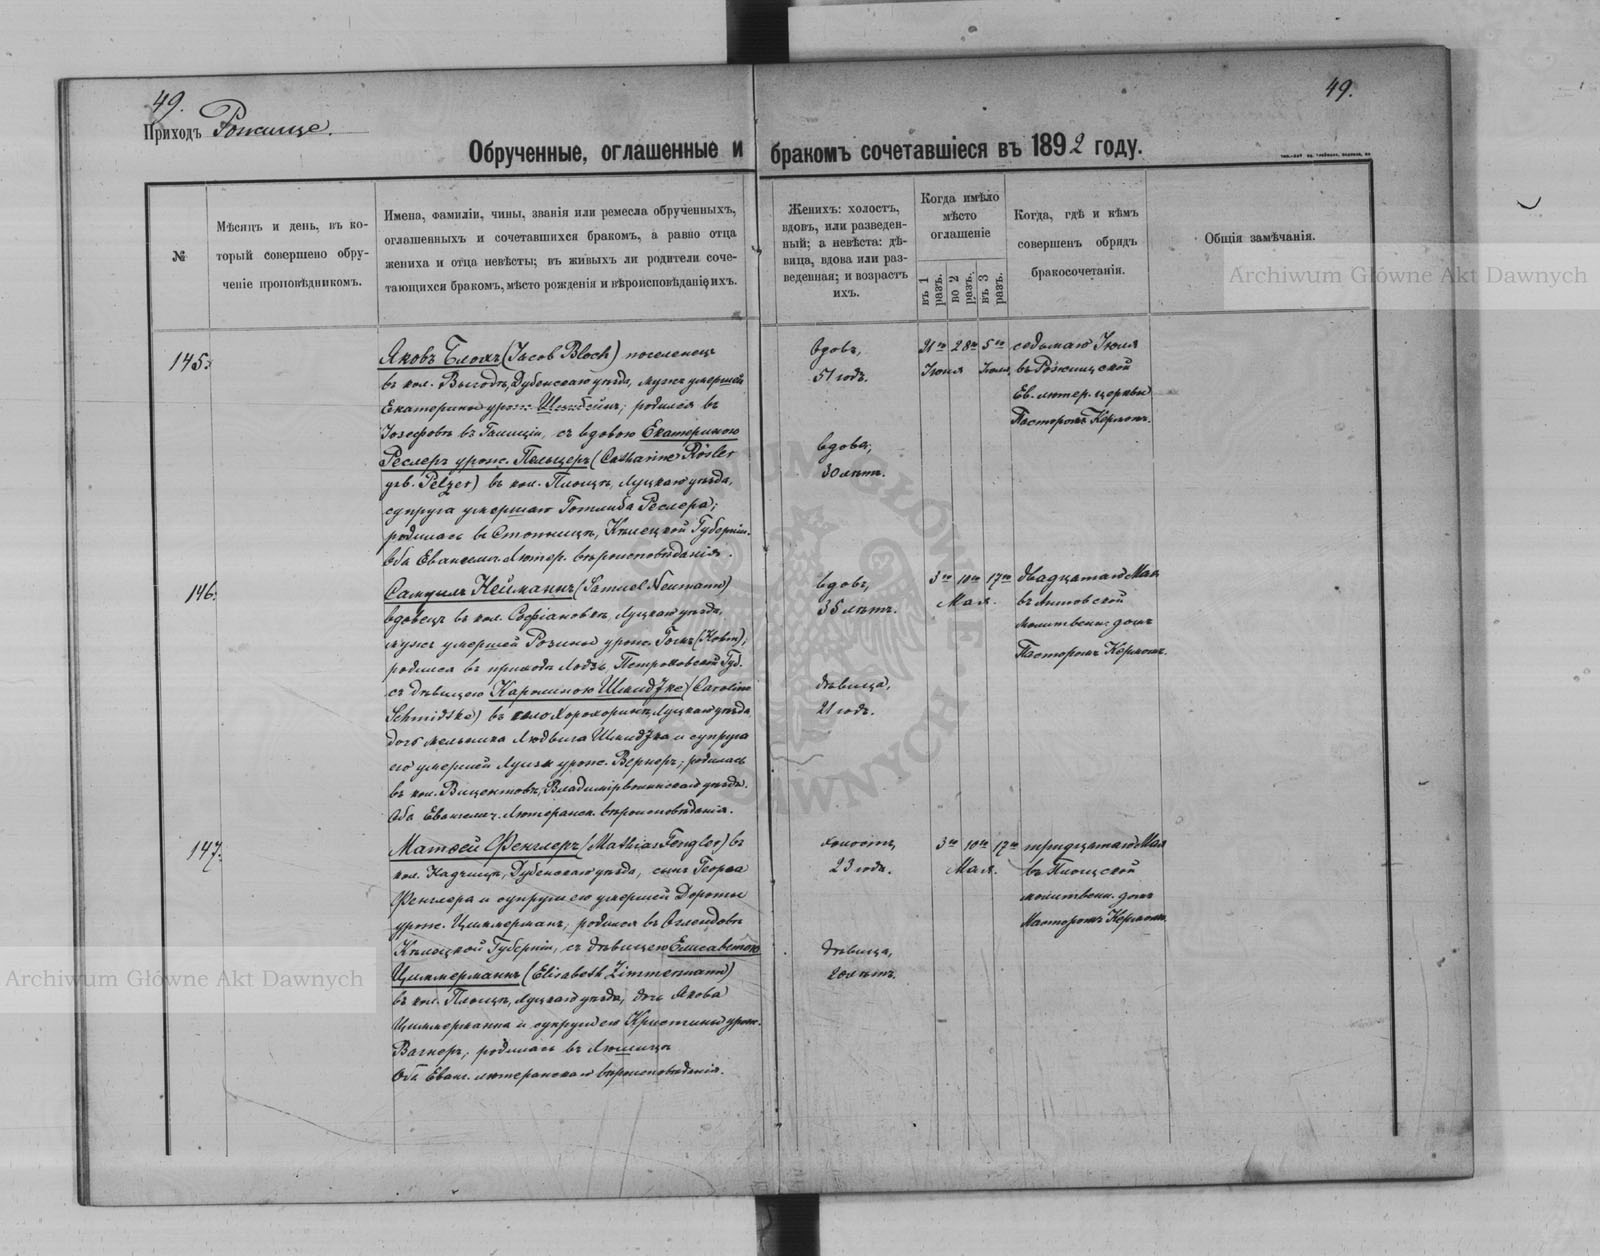 49.
49.
Приходъ Рожище.
Обрученные, оглашенные и бракомъ сочетавшіеся въ 1892 году.
№
Мѣсяцъ и день, въ ко-
торый совершено обру-
ченіе проповѣдникомъ.
Имена, фамиліи, чины, званія или ремесла обрученныхъ,
оглашенныхъ и сочетавшихся бракомъ, а равно отца
жениха и отца невѣсты; въ живыхъ ли родители соче-
тающихся бракомъ, мѣсто рожденія и вѣроисповѣданіе ихъ.
Женихъ: холостъ,
вдовъ, или разведен-
ный; а невѣста: дѣ-
вица, вдова или раз-
веденная; и возрастъ
ихъ.
Когда имѣло
мѣсто
оглашеніе
въ 1 разъ.
во 2 разъ.
въ 3 разъ.
Когда, гдѣ и кѣмъ
совершенъ обрядъ
бракосочетанія.
Общія замѣчанія.
Archiwum Główne Akt Dawnych
145.
Яковъ Блохъ (Jacob Bloch) поселенецъ
въ кол. Выгодѣ, Дубенскаго уѣзда, мужъ умершей
Екатерины урож. родился въ
Іозефовѣ въ Галиціи, съ вдовою Екатериною
Реслеръ урож. Пельцеръ (Catharine Rösler
geb. Pelzer) въ кол. Площѣ, Луцкаго уѣзда,
супруга умершаго Готлиба Реслера;
родилась въ Стопницѣ, Кѣлецкой Губерніи.
Оба Евангел. Лютер. вѣроисповѣданія.
вдовъ,
51 годъ.
вдова,
30 лѣтъ.
21го 28го 5го
Іюня Іюля
седьмаго Іюля
въ Рожищской
Ев. лютер. церкви
Пасторомъ Кермомъ.
146.
Самуилъ Нейманнъ (Samuel Neumann)
вдовецъ въ кол. Софіановкѣ, Луцкаго уѣзда,
мужъ умершей Розины урож.
родился въ приходѣ Лодзь Петроковской Губ.
съ дѣвицею Каролиною Шмидтке (Caroline
Schmidtke) въ Луцкаго уѣзда
дочь мельника Людвига Шмидтка и супруги
его умершей Луизы урож. Вернеръ; родилась
въ кол. Вицентовѣ, Владимірволынскаго уѣзда.
Оба Евангелич. Лютеранск. вѣроисповѣданія.
вдовъ,
35 лѣтъ.
дѣвица,
21 годъ.
3го 10го 17го
Мая.
двадцатаго Мая
въ
молитвенн. домѣ
Пасторомъ Кермомъ.
147.
Матѳей Фенглеръ (Mathias Fengler) въ
кол. Дубенскаго уѣзда, сынъ Георга
Фенглера и супруги его умершей Дороты
урож. Циммерманъ, родился въ
Кѣлецкой Губерніи, съ дѣвицею Елисаветою
Циммерманнъ (Elisabeth Zimmermann)
въ кол. Площѣ, Луцкаго уѣзда, дочь Якова
Циммерманна и супруги его Кристины урож.
Вагнеръ; родилась въ
Оба Еванг. лютеранскаго вѣроисповѣданія.
холостъ,
23 года.
дѣвица,
20 лѣтъ.
3го 10го 17го
Мая.
тридцатаго Мая
въ Площской
молитвенн. домѣ
Пасторомъ Кермомъ.
Archiwum Główne Akt Dawnych